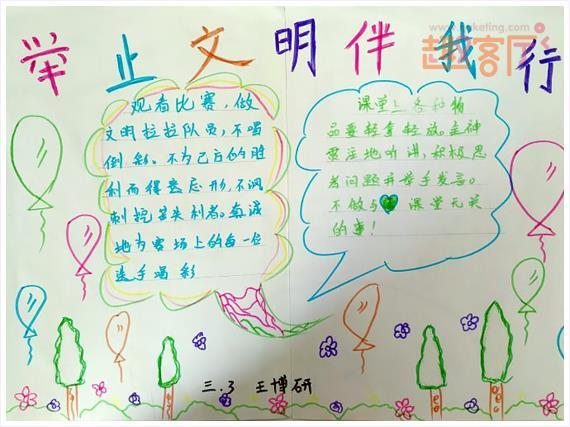 举止文明伴我行
www.pinketing.com
趣客网
观看比赛,做
文明拉拉队员,不喝
倒彩。不为己方的胜
利而得意忘形,不讽
刺挖苦失利者。真诚
地为赛场上的每一位
选手喝彩
课堂上各种物
品要轻拿轻放。全神
贯注地听讲,积极思
考问题并举手发言。
不做与 课堂无关
的事!
三.3 王博研